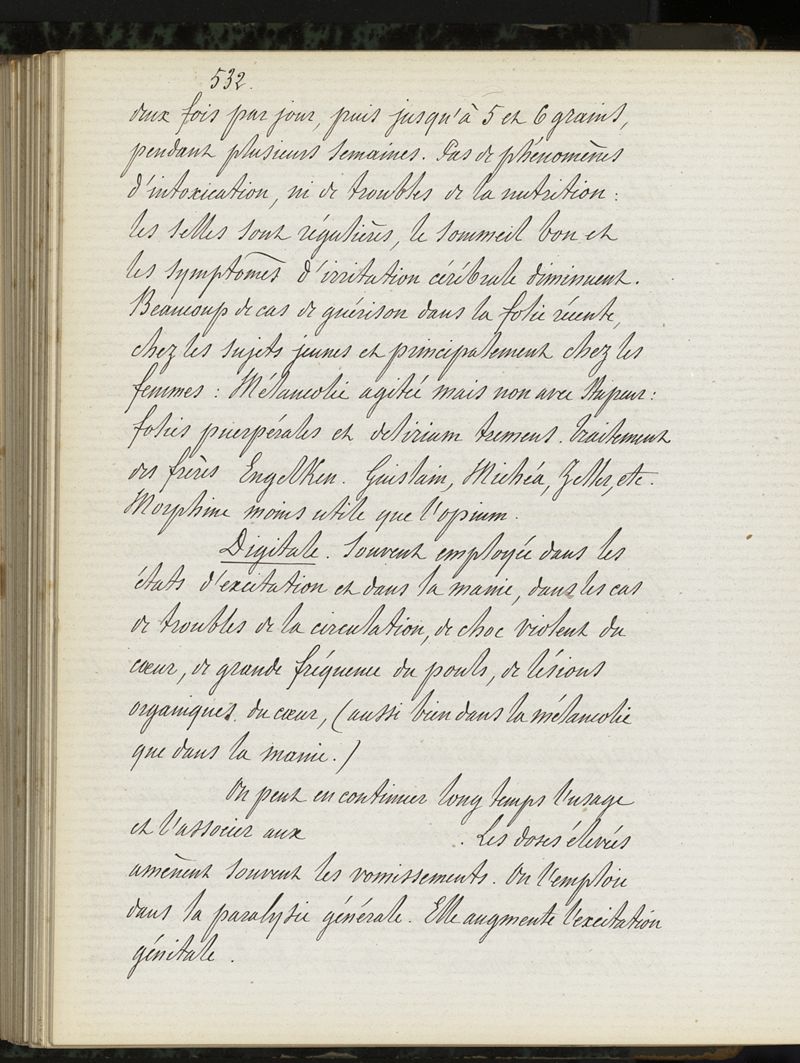 532.
deux fois par jour, puis jusqu'à 5 et 6 grains,
pendant plusieurs semaines. Pas de phénomènes
d'intoxication, ni de troubles de la nutrition :
les selles sont régulières, le sommeil bon et
les symptomes d'irritation cérébrale diminuent.
Beaucoup de cas de guérison dans la folie récente,
chez les sujets jeunes et principalement chez les
femmes : Mélancolie agitée mais non avec stupeur :
folies puerpérales et delirium tremens. Traitement
des frères Engelken. Guislain, Michéa, Zeller, etc.
Morphine moins utile que l'opium.
Digitale. Souvent employée dans les
états d'excitation et dans la manie, dans les cas
de troubles de la circulation, de choc violent du
cœur, de grande fréquence du pouls, de lésions
organiques du cœur, (aussi bien dans la mélancolie
que dans la manie.)
On peut en continuer long temps l'usage
et l'associer aux . Les doses élevées
amènent souvent les vomissements. On l'emploie
dans la paralysie générale. Elle augmente l'excitation
génitale.